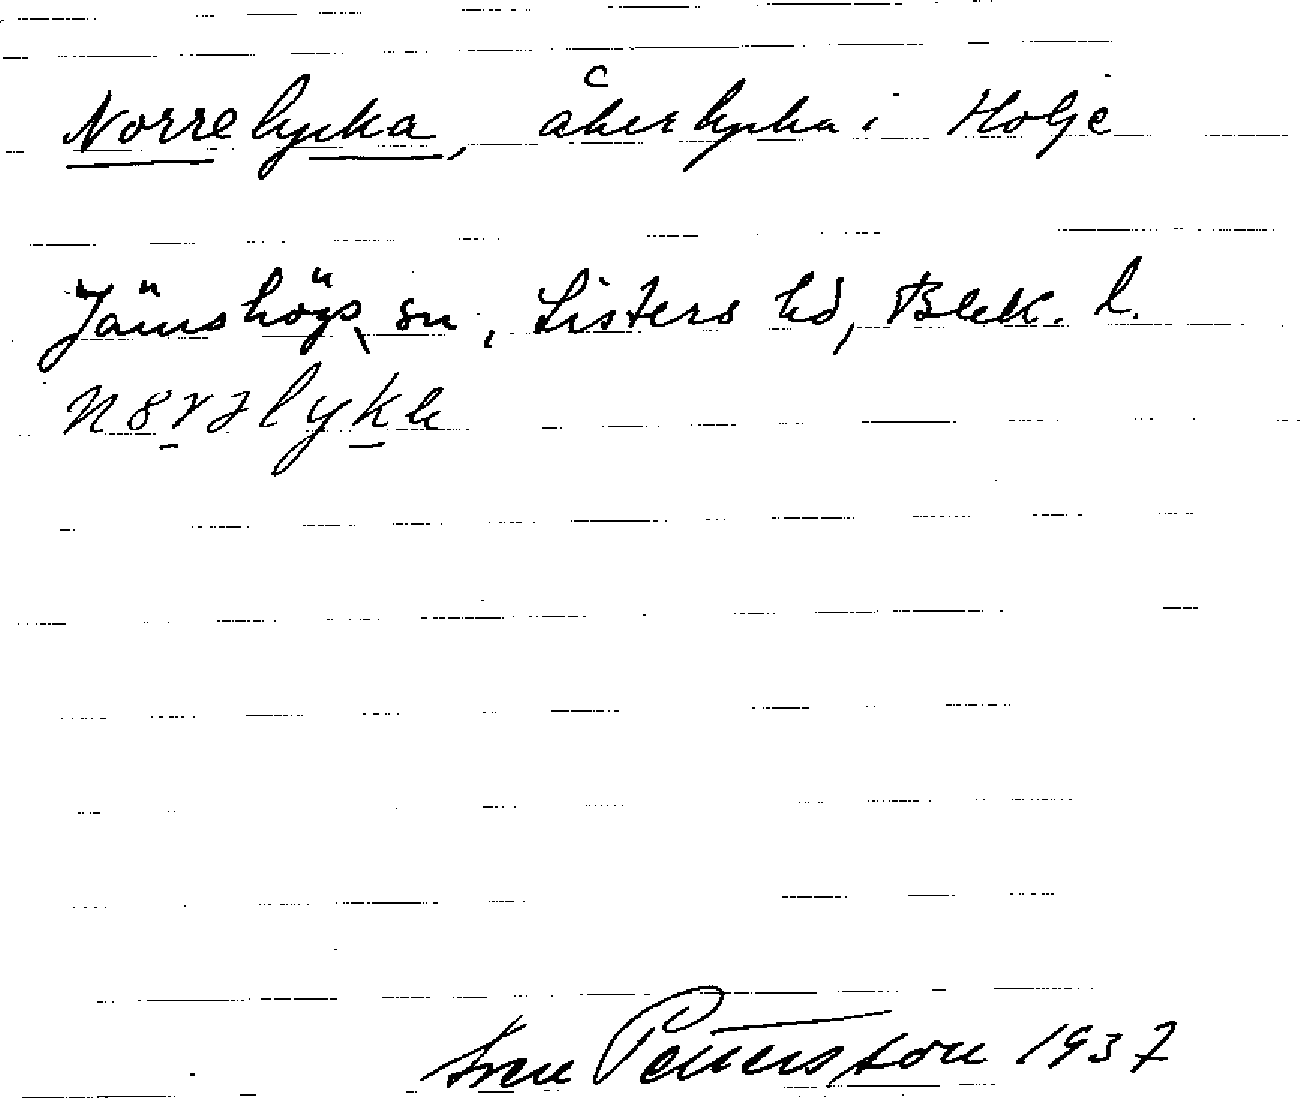 Norrelycka, åkerlycka i Holje
Jämshögs sn, Listers hd, Blek. l.
Sven Pettersson 1937